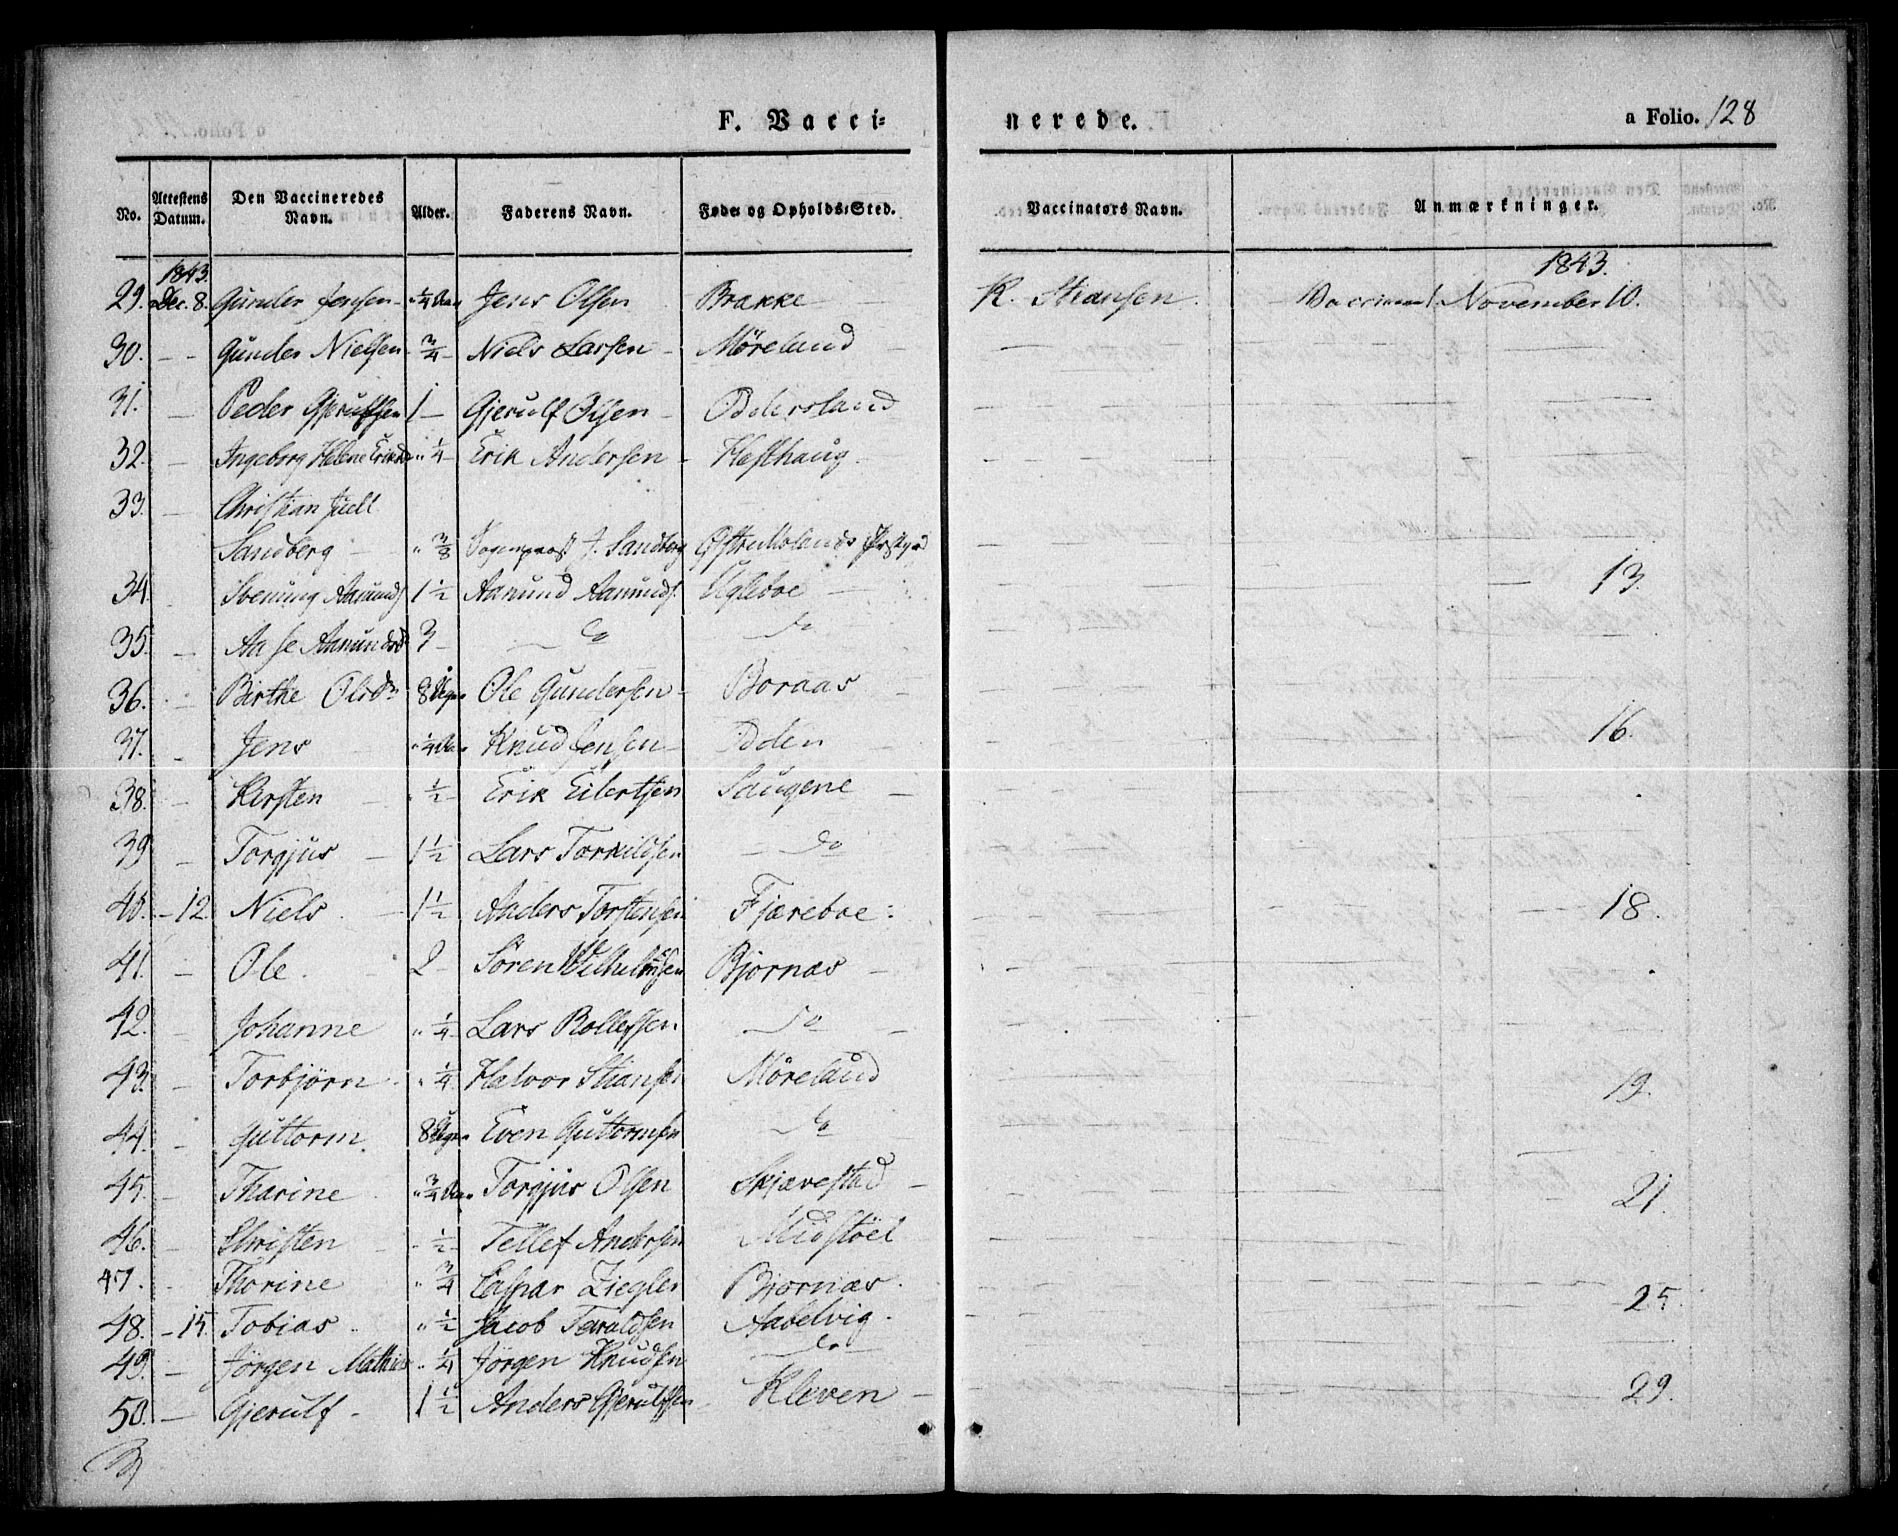 F. Vacci=
nerede.
a Folio. 128
No. Attestens Datum. Den Vaccineredes Navn. Alder. Faderens Navn. Føde: og Opholds:Sted. Vaccinators Navn. Anmærkninger.
1843. 1843.
29. Dec. 8. Gunder Jensen - " 1/4 Jens Olsen Brække K. Stiansen. Vaccineret November 10.
30. - - Gunder Nielsen 3/4 - Niels Larsen - Møreland -
31. - Peder Gjerulfsen 1 - Gjerulf Olsen - Oddersland
32. - Ingeborg Helene " 1/4 - Erik Andersen - Hesthaug
33. - Christian Juell
Sandberg - " 3/8 J. Sandberg
34. Aamunds 1 1/2 Aamund Aamunds. Ugleboe - 13.
35. - Aase Aamundsd 3 - do do
36. - Birthe Olsd 8 Uger Ole Gundersen - Boraas -
37. - Jens " 1/4 Knud Jensen - Odden 16.
38. - Kirsten - " 1/2 - Erik Eilertsen Saugene -
39 - Torgjus - 1 1/2 Lars Torkildsen - do
40. - 12. Niels - 1 1/2 Anders Torstensen Fjæreboe: 18.
41. - Ole. - 2 - Søren Wilhelmsen Bjornæs -
42. - Johanne " 1/4 - Lars Rollefsen do -
43. - Torbjørn - " 1/4 Halvor Stiansen Møreland 19.
44. - Guttorm. 8 Uger Even Guttormsen do
45. - Tharine " 3/4 Torgjus Olsen Skjævestad - 21.
46. - Christen - " 1/2 - Tellef Andersen Midstöel
47. - Thorine " 3/4 Caspar Ziegler Bjornæs.
48. - 15. Tobias. " 1/2 Jacob Taraldsen Aabelvig. 25.
49. - Jörgen Mathias " 1/4 Jörgen Knudsen do
50. - Gjerulf - 1 1/2 Anders Gjerulfsen Kleven - 29.